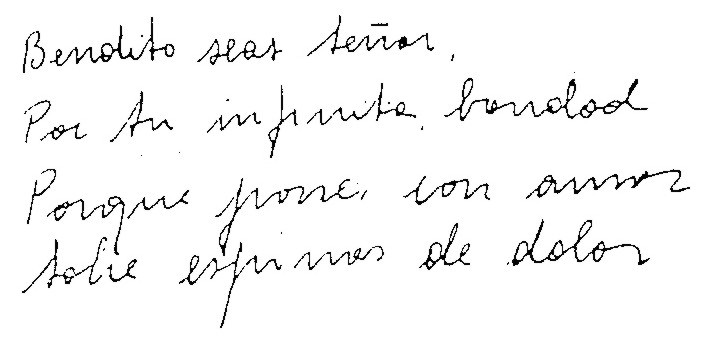 Bendito seas señor,
Por tu infinita bondad
Porque pones con amor
sobre espinas de dolor